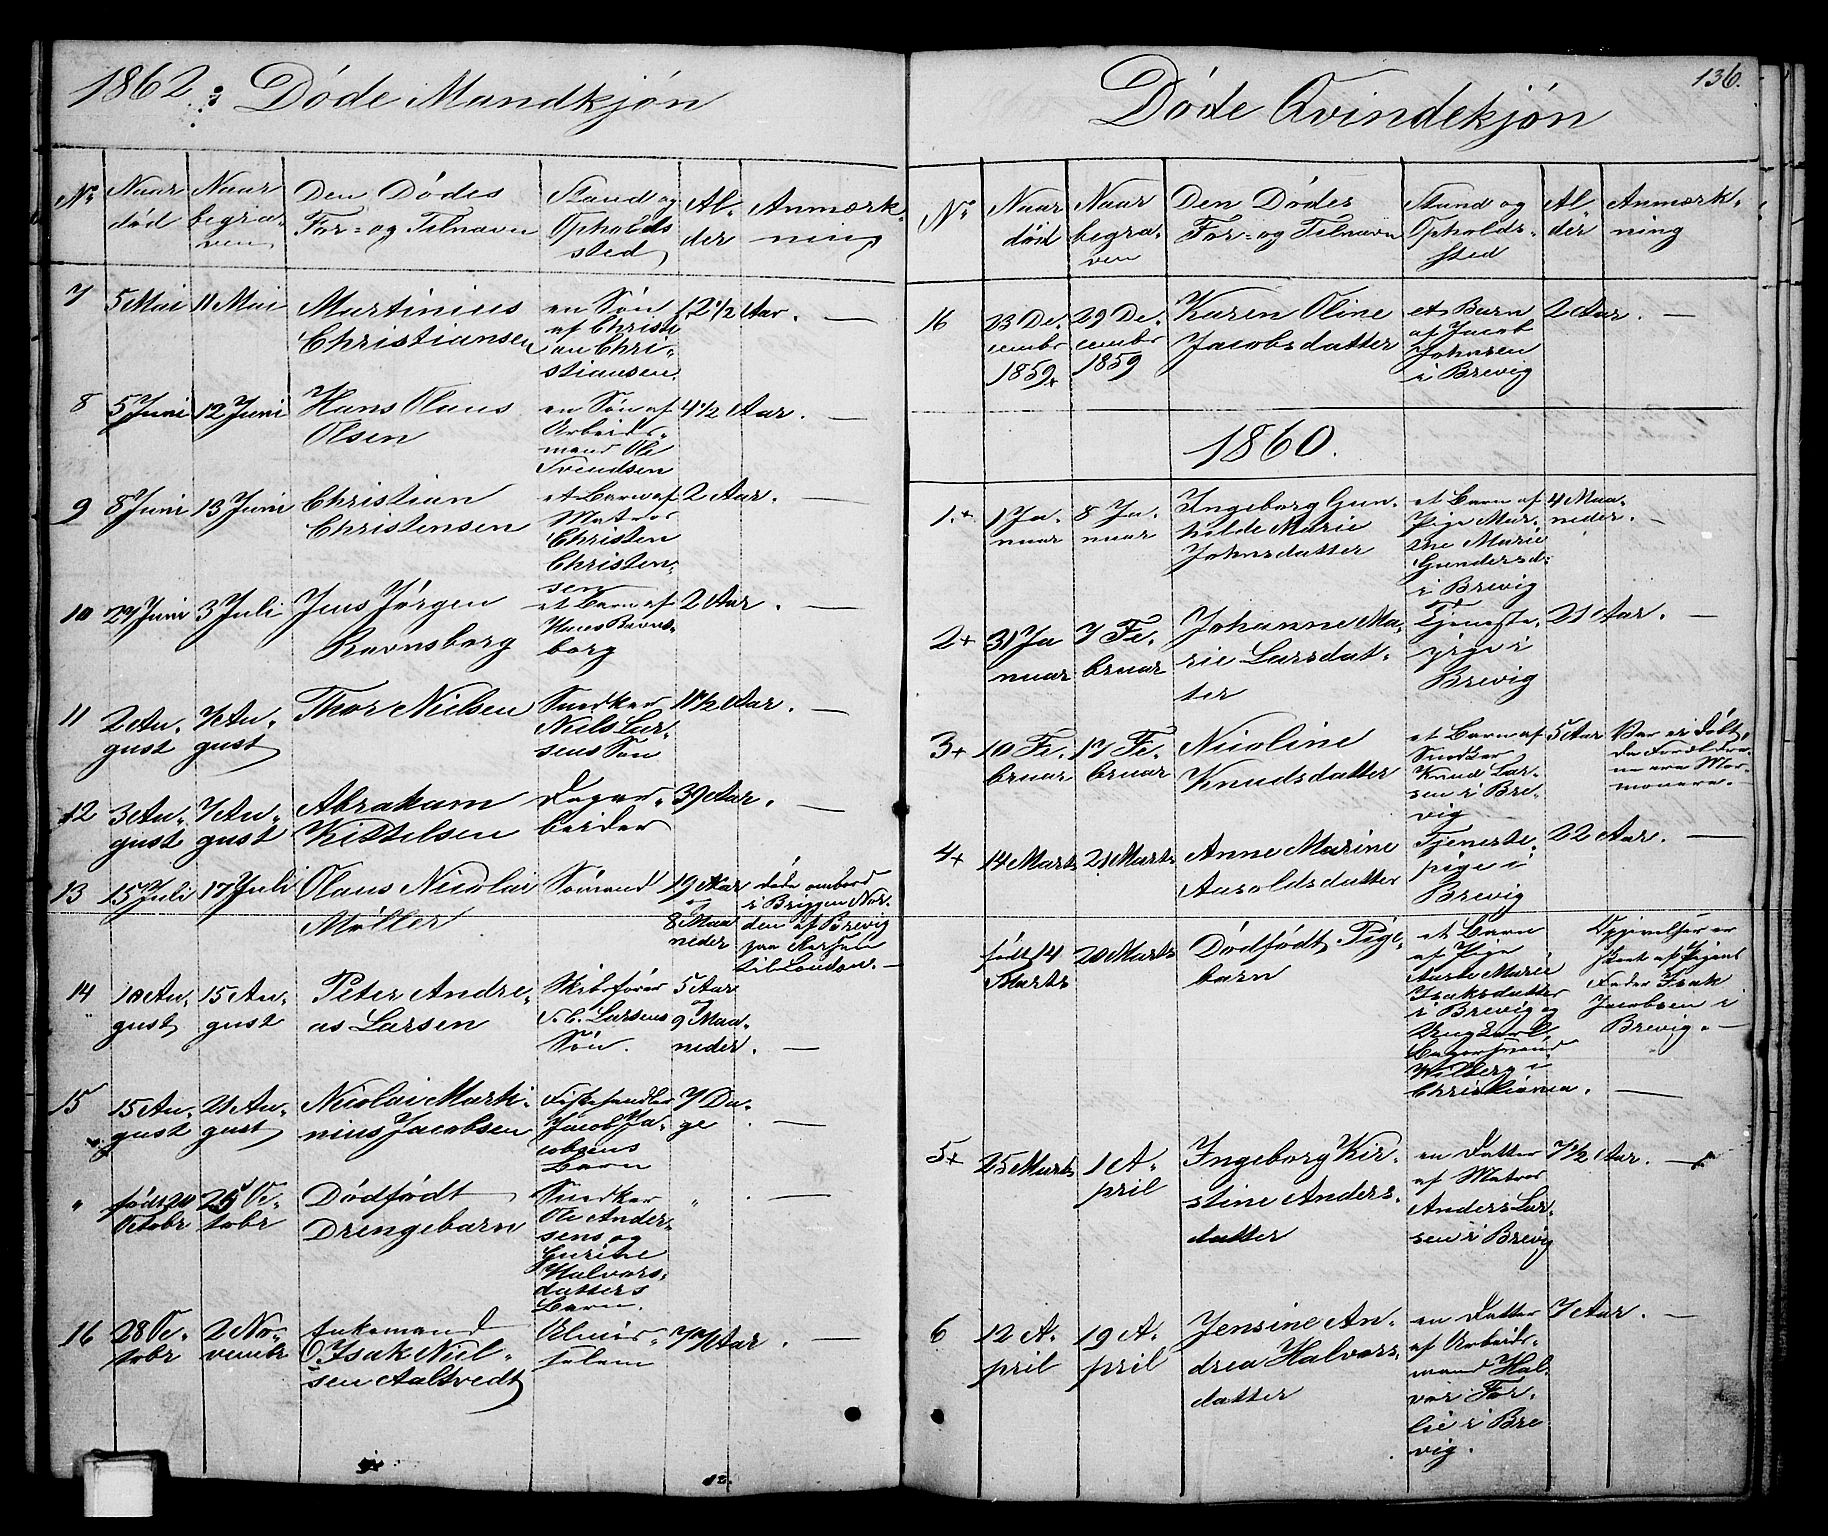 1862. Døde Mandkjøn
No
Naar død
Naar begraven
Den Dødes For- og Tilnavn
Stand og Opholdssted
Alder
Anmærkning
7
5 Mai
11 Mai
Martinius
Christiansen
en Søn
af Christi
an Chri-
stiansen
12 1/2 Aar. —
8
5 Juni
12 Juni
Hans Olaus
Olsen
en Søn af
Arbeids-
mand Ole
Svendsen
4 1/2 Aar. —
9
8 Juni
13 Juni
Christian
Christensen
et Barn af
Matros
Christen
Christen-
sen
2 Aar. —
10
27 Juni
3 Juli
Jens Jørgen
Ravnsborg
et Barn af
Hans Ravns-
borg
2 Aar. —
11
2 Au-
gust
7 Au-
gust
Thor Nielsen
Snedker
Niels Lar-
sens Søn
11 1/2 Aar. —
12
3 Au-
gust
7 Au-
gust
Abraham
Kittelsen
Dagar-
beider
39 Aar. —
13
15 Juli
17 Juli
Olaus Nicolai
Møller
Sømand
19 Aar
og
8 Maa
neder
døde ombord
i Briggen Nor-
den af Brevig
paa Reisen
til London. —
14
10 Au-
gust
15 Au-
gust
Peter Andre-
as Larsen
Skibsfører
Larsens
Søn.
5 Aar
9 Maa-
neder. —
15
15 Au-
gust
21 Au-
gust
Nicolai Marti-
nius Jacobsen
Fiskehandler
Jacob Ja-
cobsens
Barn
7 Da-
ge. —
"
født 20
Octobr
25 Oc-
tobr
Dødfødt
Drengebarn
Snedker
Ole Ander-
sens og
Halvors-
datters
Barn.
" . —
16
28 Oc-
tobr
2 No-
vembr
Enkemand
Isak Niel-
sen Aaltvedt
Almis-
selem
Aar. —
12.
136.
Døde Qvindekjøn
No
Naar død
Naar begraven
Den Dødes For- og Tilnavn
Stand og Opholdssted
Alder
Anmærkning
16
23 De-
cembr
1859+
29 De-
cembr
1859
Karen Oline
Jacobsdatter
et Barn
af Jacob
Johnsen
i Brevig
2 Aar. —
1860.
1.+
1 Ja-
nuar
8 Ja-
nuar
Ingeborg Gun-
hilde Marie
Johnsdatter
et Barn af
Pige Mar-
the Marie
Gundersd.
i Brevig
4 Maa-
neder. —
2+
31 Ja
nuar
7 Fe-
bruar
Johanne Ma-
rie Larsdat-
ter
Tjeneste-
pige i
Brevig
21 Aar. —
3+
10 Fe-
bruar
17 Fe-
bruar
Nicoline
Knudsdatter
et Barn af
Snedker
Knud Lar-
sen i Bre-
vig
5 Aar
Var ei døbt,
da Forældre-
ne ere Mor-
monere. —
4+
14 Marts
21 Marts
Anne Marine
Aaroldsdatter
Tjeneste-
pige i
Brevig
22 Aar. —
født 14
Marts
20 Marts
Dødfødt Pige-
barn
et Barn
af Pige
Marie
Isaksdatter
i Brevig og
Wilberg i
Christiania. —
Opgivelsen er
skeet af Pigens
Fader Isak
Jacobsen i
Brevig. —
5+
25 Marts
1 A-
pril
Ingeborg Kir-
stine Anders-
datter
en Datter
af Matros
Anders Lar-
sen i Brevig
7 1/2 Aar. —
6
12 A-
pril
19 A-
pril
Jensine An-
drea Halvors-
datter
en Datter
af Arbeids-
mand Hal-
vor Tor-
i Bre
vig.
7 Aar. —